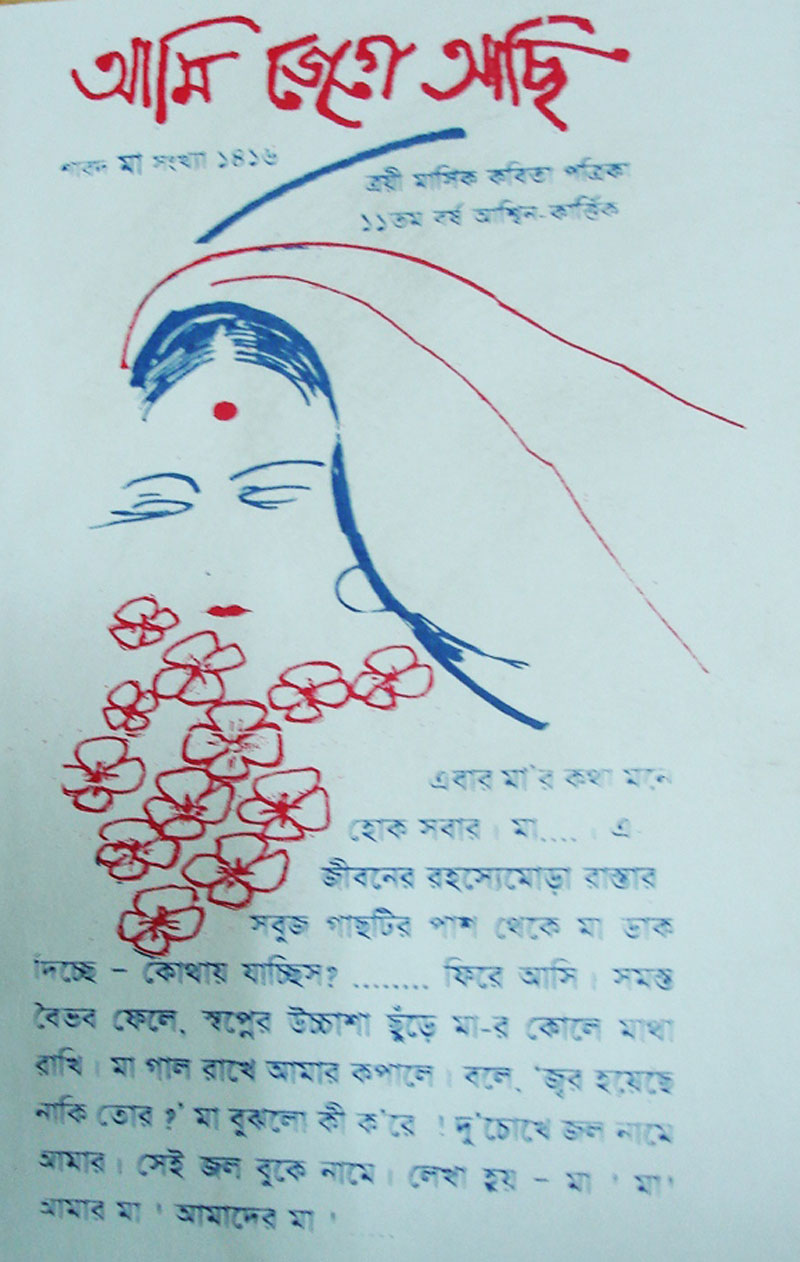 আমি জেগে আছি
শারদ মা সংখ্যা ১৪১৬
ত্রয়ী মাসিক কবিতা পত্রিকা
১১তম বর্ষ আশ্বিন-কার্ত্তিক
এবার মা'র কথা মনে
হোক সবার। মা....। এ
জীবনের রহস্যেমোড়া রাস্তার
সবুজ গাছটির পাশ থেকে মা ডাক
দিচ্ছে – কোথায় যাচ্ছিস? ........ ফিরে আসি। সমস্ত
বৈভব ফেলে, স্বপ্নের উচ্চাশা ছুঁড়ে মা-র কোলে মাথা
রাখি। মা গাল রাখে আমার কপালে। বলে, 'জ্বর হয়েছে
নাকি তোর ?' মা বুঝলো কী ক'রে ! দু'চোখে জল নামে
আমার। সেই জল বুকে নামে। লেখা হয় – মা ! মা!
আমার মা ! আমাদের মা ! .....